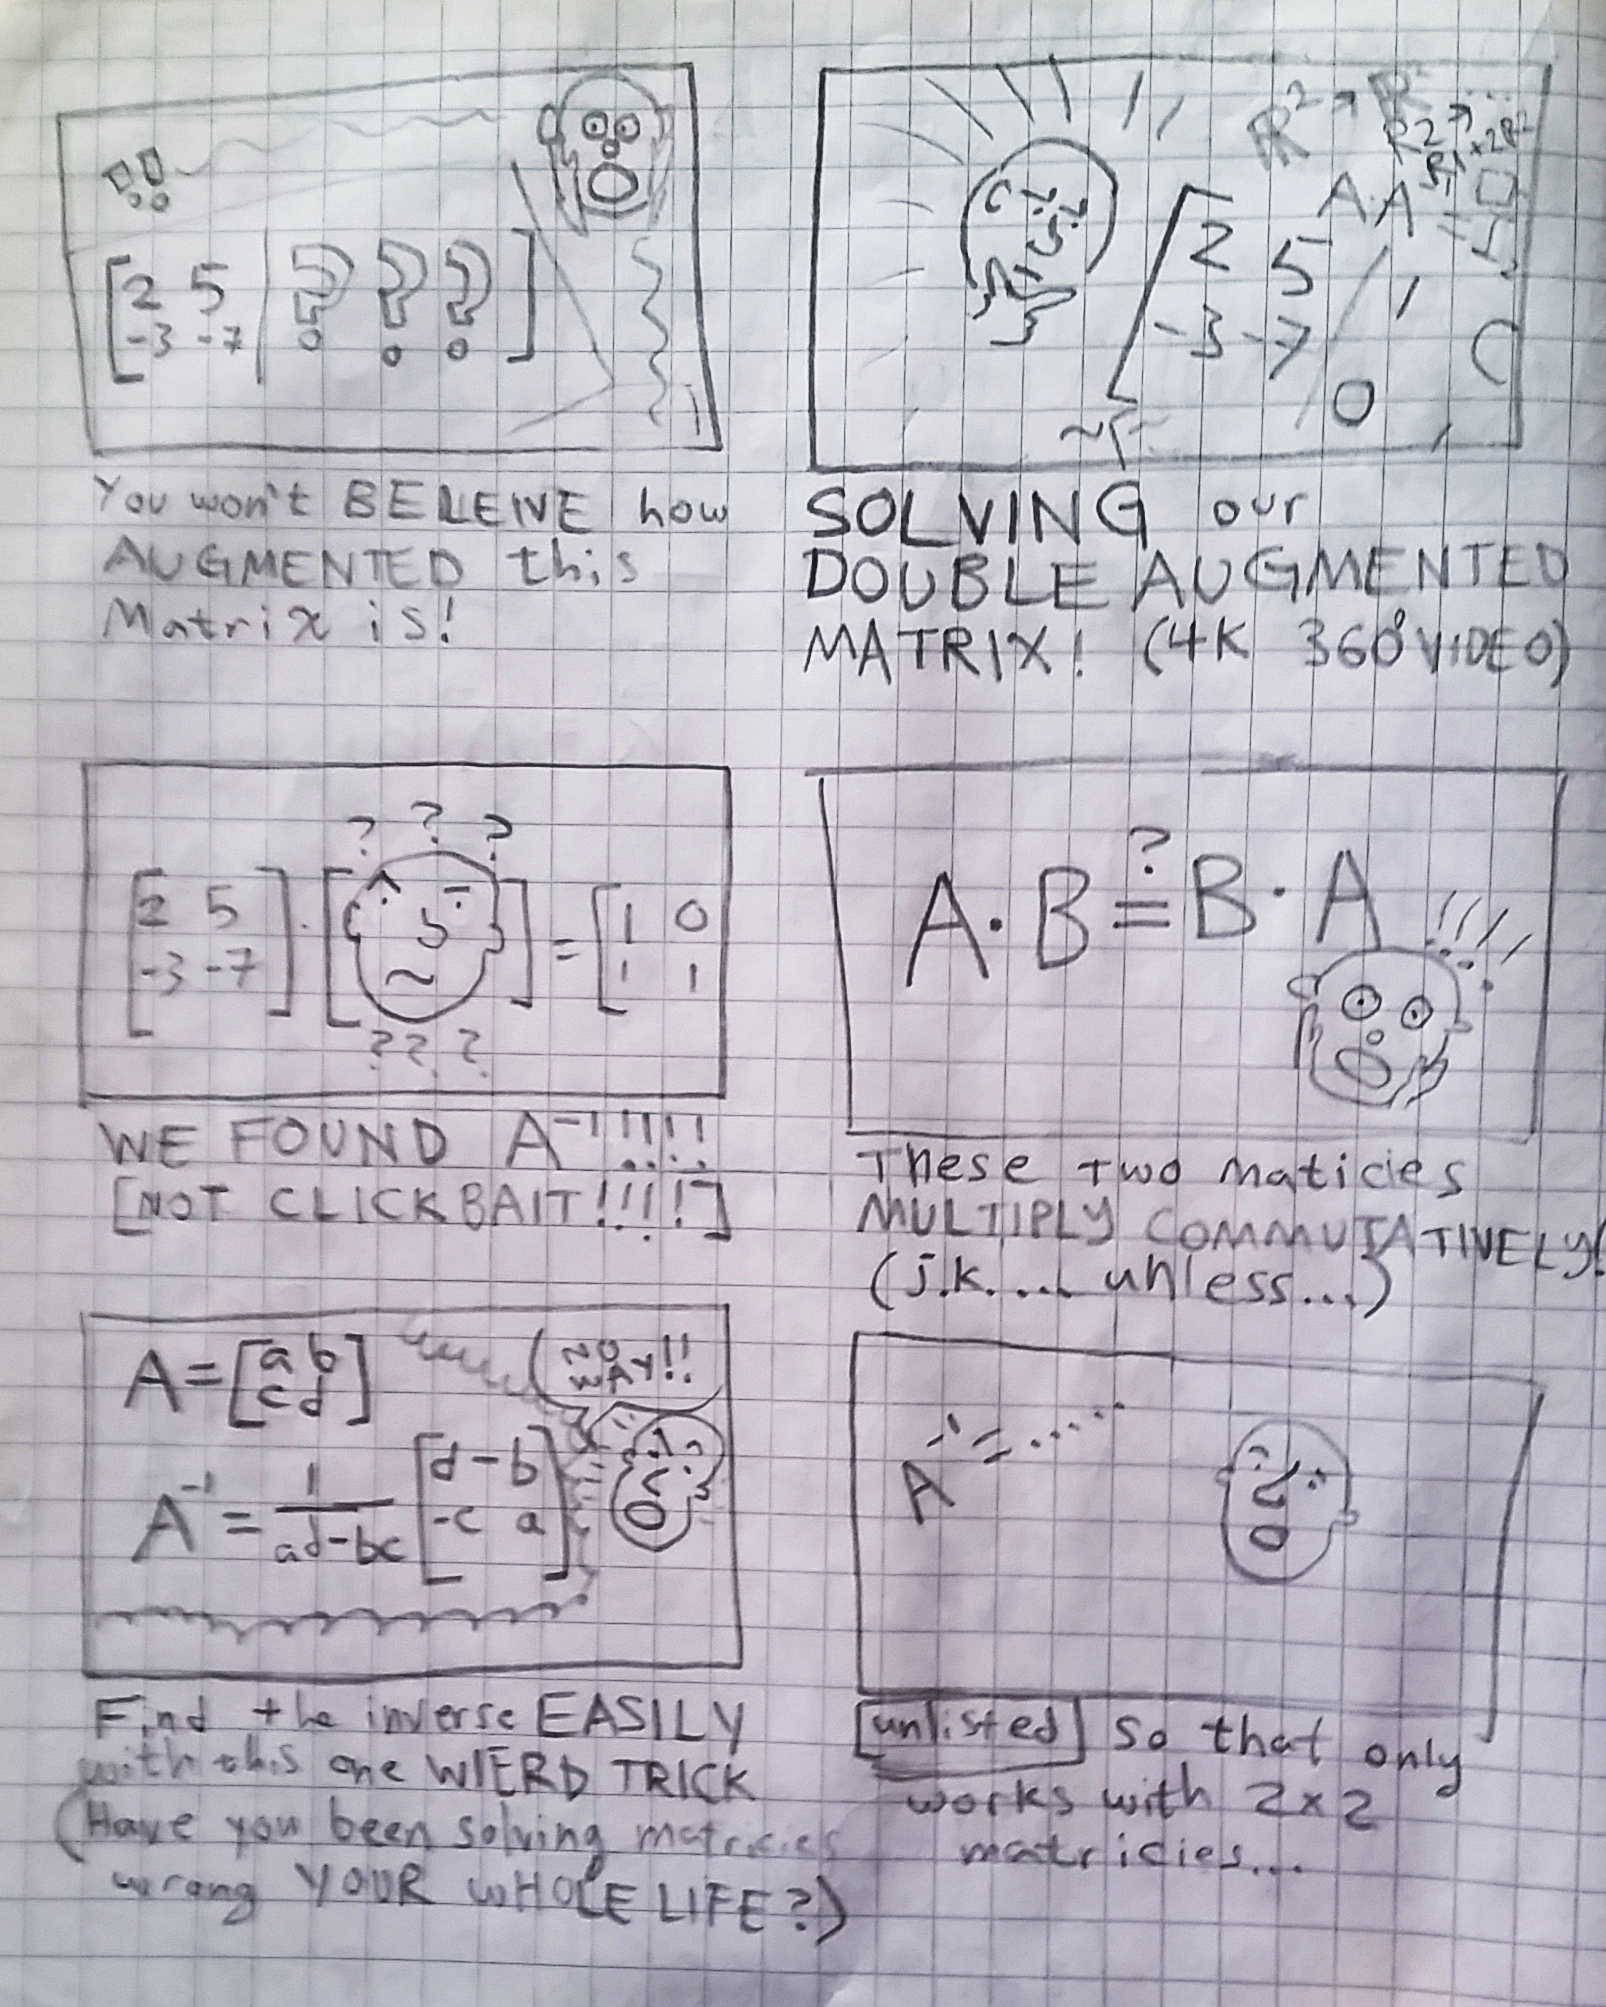 !!
[2 5 | ? ? ?]
-3 -7
You won't BELEIVE how
AUGMENTED this
Matrix is!
R² → R² ...
R2 →
R1 + 2R²
A·A⁻¹ =
2 5 1
-3 -7 0
~[
SOLVING our
DOUBLE AUGMENTED
MATRIX! (4K 360° VIDEO)
? ? ?
[2 5] · [ ] = [1 0]
-3 -7 1 1
? ? ?
WE FOUND A⁻¹!!!!
[NOT CLICKBAIT!!!!]
?
A·B = B·A
!!!!
These two maticies
MULTIPLY COMMUTATIVELY!
(j.k.... unless...)
A = [a b]
c d
NO
WAY!!
A⁻¹ = 1 [d -b]
ad-bc -c a
Find the inverse EASILY
with this one WIERD TRICK
(Have you been solving matricies
wrong YOUR WHOLE LIFE?)
A⁻¹ = ......
[unlisted] So that only
works with 2x2
matricies...